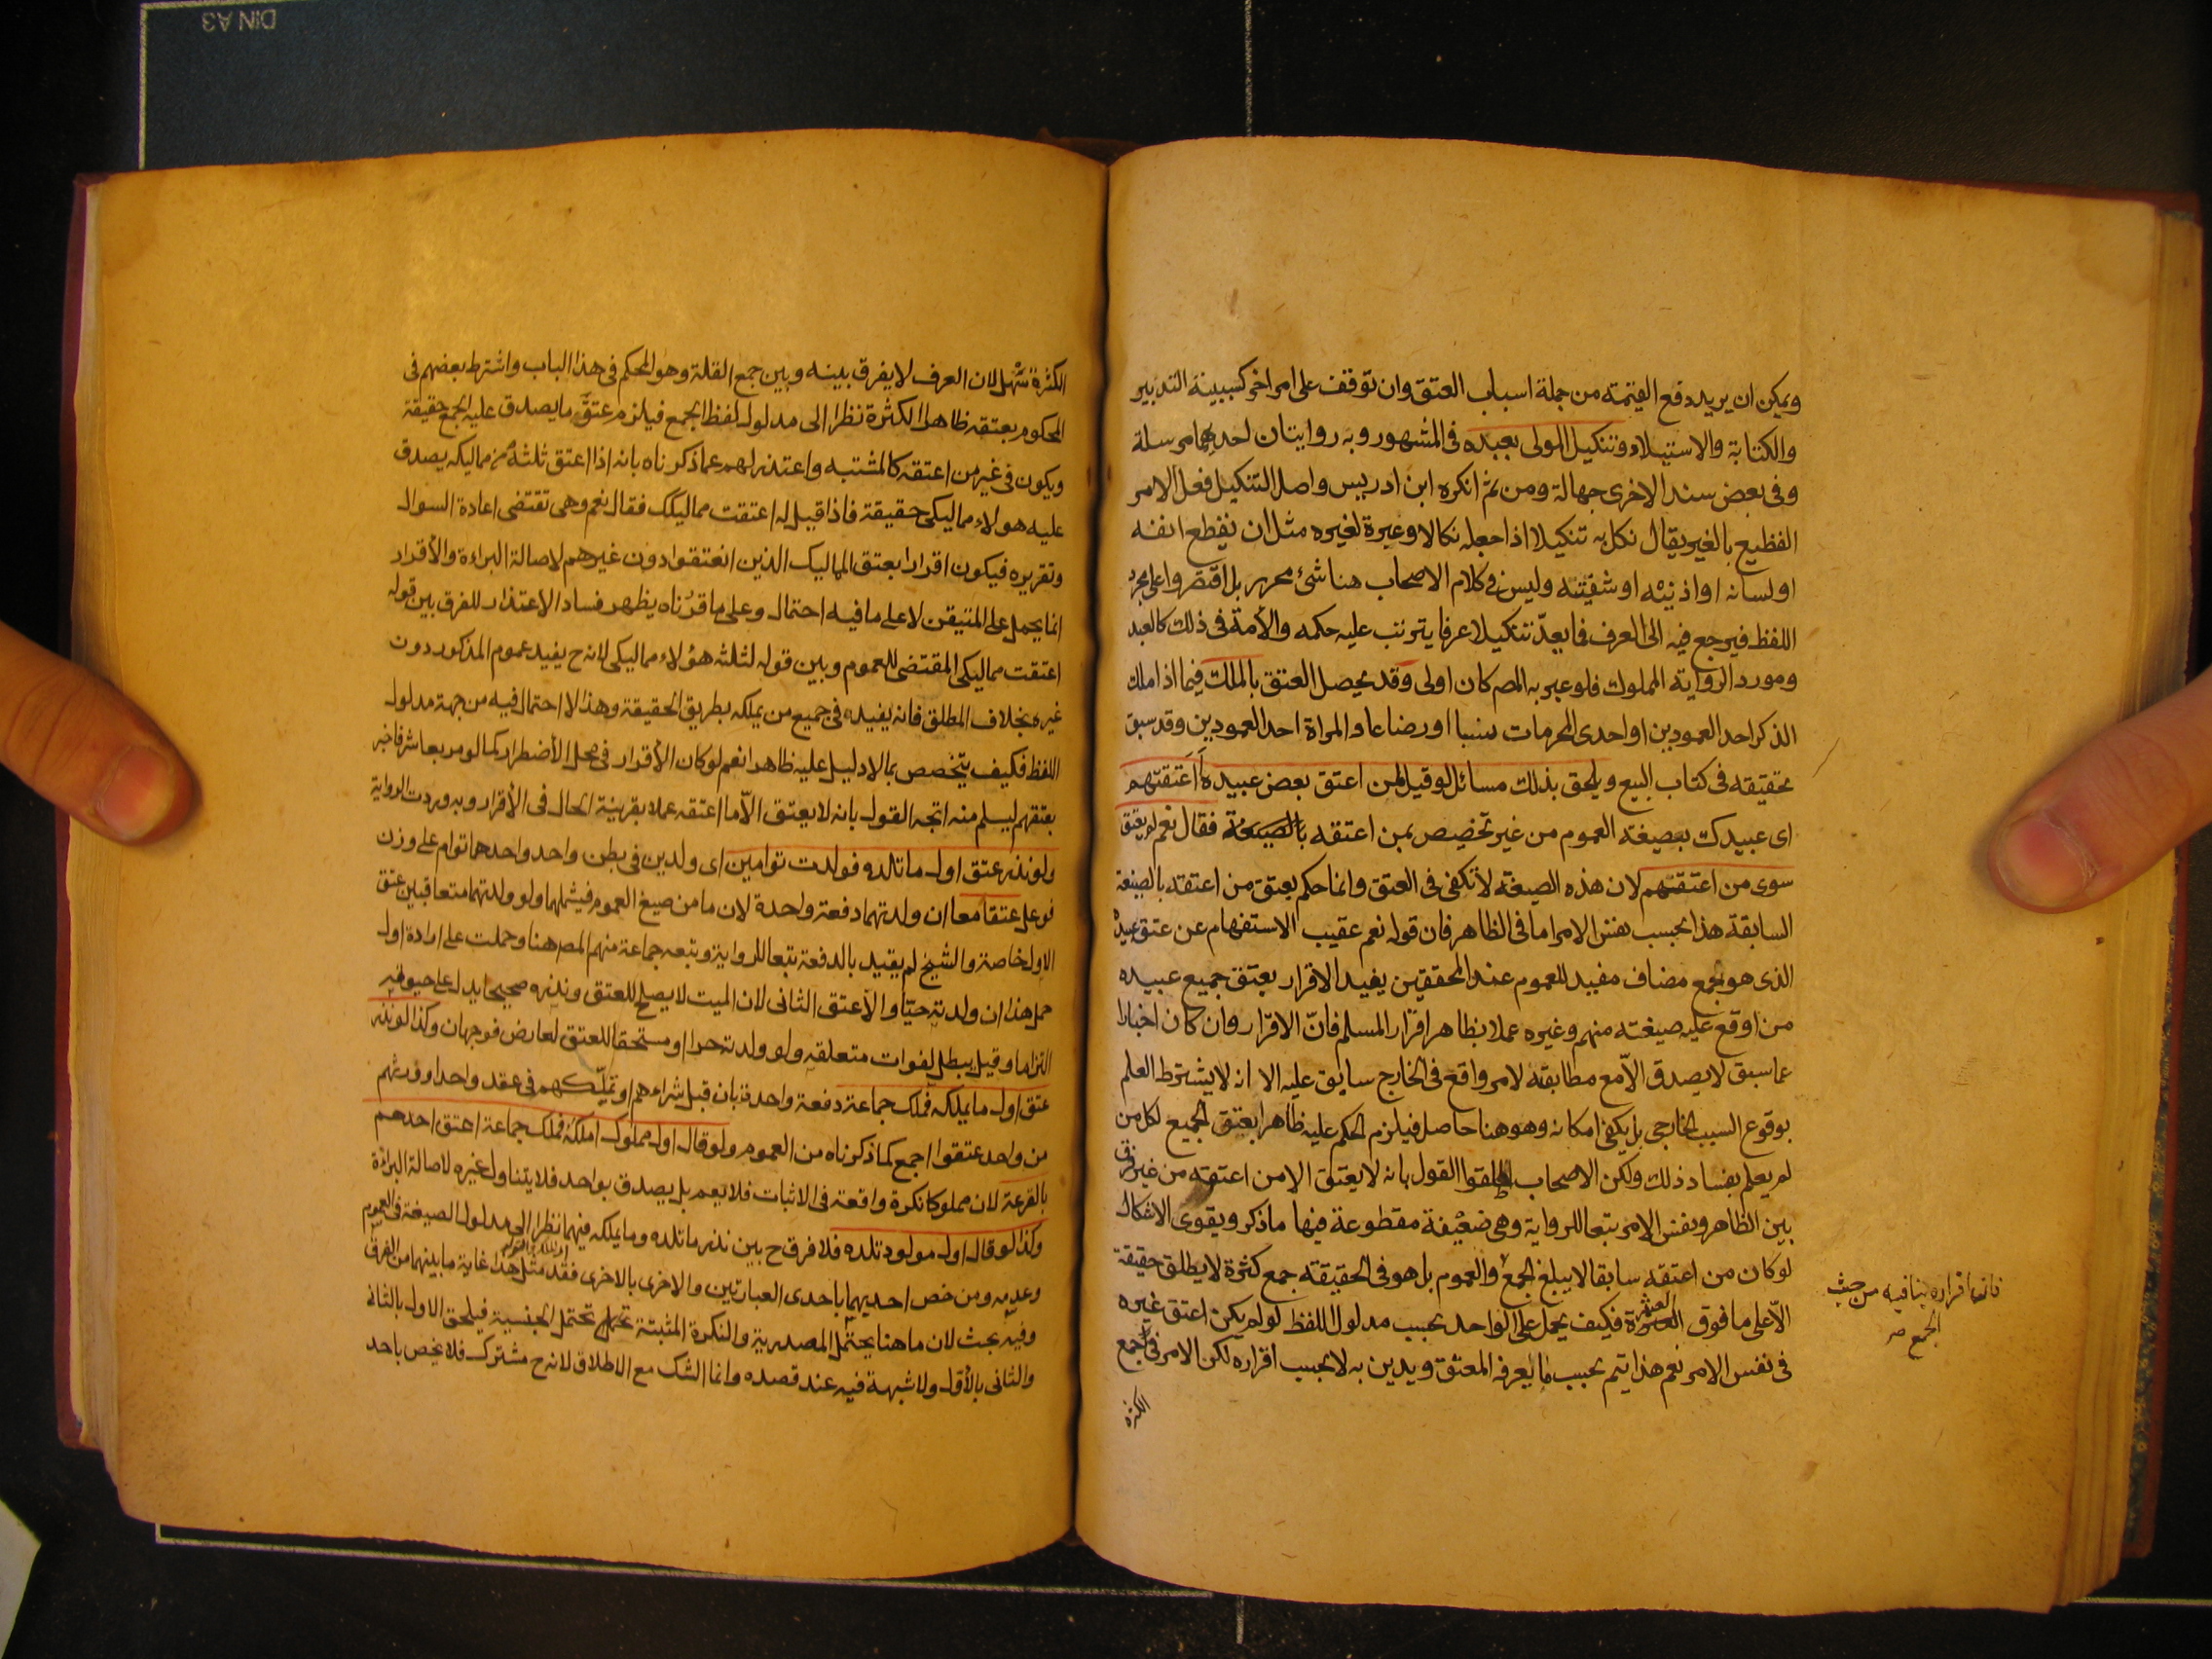 ويمكن ان يريد دفع القيمة من جملة اسباب العتق وان توقف على امر اخر كسببية التدبير
والكتابة والاستيلاد وتنكيل المولى بعبده في المشهور وبه روايتان احديهما مرسلة
وفي بعض سند الاخرى جهالة ومن ثم انكره ابن ادريس واصل التنكيل فعل الامر
الفظيع بالغير يقال نكل به تنكيلا اذا جعله نكالا وعبرة لغيره مثل ان يقطع انفه
او لسانه او اذنيه او شفتيه وليس في كلام الاصحاب هنا شئ محرر بل اقتصروا على مجرد
اللفظ فيرجع فيه الى العرف فما يعدّ تنكيلا عرفا يترتب عليه حكمه والأمة في ذلك كالعبد
ومورد الرواية المملوك فلو عبر به المص كان اولى وقد يحصل العتق بالملك فيما اذا ملك
الذكر احد العمودين او احدى المحرمات نسبا او رضاعا والمراة احد العمودين وقد سبق
تحقيقه في كتاب البيع ويلحق بذلك مسائل لو قيل لمن اعتق بعض عبيده أَأعتقتهم
اى عبيدك بصيغة العموم من غير تخصيص بمن اعتقه بالصيغة فقال نعم لم يعتق
سوى من اعتقهم لان هذه الصيغة لا تكفي في العتق وانما حكم بعتق من اعتقه بالصيغة
السابقة هذا بحسب نفس الامر اما في الظاهر فان قوله نعم عقيب الاستفهام عن عتق عبيده
الذى هو جمع مضاف مفيد للعموم عند المحققين يفيد الاقرار بعتق جميع عبيده
من اوقع عليه صيغته منهم وغيره عملا بظاهر اقرار المسلم فانّ الاقرار وان كان اخبارا
عما سبق لا يصدق الاّ مع مطابقة لامر واقع في الخارج سابق عليه الا انه لا يشترط العلم
بوقوع السبب الخارجي بل يكفى امكانه وهو هنا حاصل فيلزم الحكم عليه ظاهرا بعتق الجميع لكل من
لم يعلم بفساد ذلك ولكن الاصحاب اطلقوا القول بانه لا يعتق الا من اعتقه من غير فرق
بين الظاهر ونفس الامر تبعا للرواية وهى ضعيفة مقطوعة فيها ما ذكر ويقوى الاشكال
لو كان من اعتقه سابقا لا يبلغ الجمع والعموم بل هو في الحقيقة جمع كثرة لا يطلق حقيقة
الاّ على ما فوق العشرة فكيف يحمل على الواحد بحسب مدلول اللفظ لو لم يكن اعتق غيره
في نفس الامر نعم هذا يتم بحسب ما يعرفه المعتق ويدين به لا بحسب اقراره لكن الامر في جمع
الكثرة
فانما اقراره ينافيه من حيث
الجمع صح
الكثرة سهل لان العرف لا يفرق بينه وبين جمع القلة وهو المحكم في هذا الباب واشترط بعضهم في
المحكوم بعتقه ظاهرا الكثرة نظرا الى مدلول لفظ الجمع فيلزم عتق ما يصدق عليه الجمع حقيقة
ويكون في غير من اعتقه كالمشتبه واعتذر لهم عما ذكرناه بانه اذا اعتق ثلثة من مماليكه يصدق
عليه هولاء مماليكى حقيقة فاذا قيل له اعتقت مماليكك فقال نعم وهى تقتضى اعادة السوال
وتقريره فيكون اقرارا بعتق المماليك الذين انعتقوا دون غيرهم لاصالة البراءة والأقرار
انما يحمل على المتيقن لا على ما فيه احتمال وعلى ما قرّرناه يظهر فساد الاعتذار للفرق بين قوله
اعتقت مماليكى المقتضى للعموم وبين قوله لثلثة هؤلاء مماليكى لانه ح يفيد عموم المذكور دون
غيره بخلاف المطلق فانه يفيده في جميع من يملكه بطريق الحقيقة وهذا لا احتمال فيه من جهة مدلول
اللفظ فكيف يتخصص بما لا دليل عليه ظاهرا نعم لو كان الأقرار في محل الأضطرار كما لو مر بعاشر فاخبر
بعتقهم ليسلم منه اتجه القول بانه لا يعتق الاّ ما اعتقه عملا بقرينة الحال في الأقرار وبه وردت الرواية
ولو نذر عتق اول ما تلده فولدت توامين اى ولدين في بطن واحد واحدهما توام على وزن
فوعل عتقا معا ان ولدتهما دفعة واحدة لان ما من صيغ العموم فيشملهما ولو ولدتهما متعاقبين عتق
الاول خاصة والشيخ لم يقيد بالدفعة تبعا للرواية وتبعه جماعة منهم المصر هنا وحملت على ارادة اول
حمل هذا ان ولدته حيّا والا عتق الثانى لان الميت لا يصلح للعتق ونذره صحيحا يدل على حيوته
التزاما وقيل يبطل لفوات متعلقه ولو ولدته حرا او مستحقا للعتق لعارض فوجهان وكذا لو نذر
عتق اول ما يملكه فملك جماعة دفعة واحدة بان قبل شراءهم او تملّكهم في عقد واحد او ورثهم
من واحد عتقوا اجمع كما ذكرناه من العموم ولو قال اول مملوك املكه فملك جماعة اعتق احدهم
بالقرعة لان مملوكا نكرة واقعة في الاثبات فلا يعم بل يصدق بواحد فلا يتناول غيره لاصالة البراءة
وكذا لو قال اول مولود تلده فلا فرق ح بين نذر ما تلده وما يملكه فيهما نظرا الى مدلول الصيغة في العموم
وعدمه ومن خص احديهما باحدى العبارتين والاخرى بالاخرى فقد مثل هذا غاية ما بينهما من الفرق
وفيه بحث لان ما هنا يحتمل المصدرية والنكرة المثبتة تحتمل الجنسية فيلحق الاول بالثانى
والثانى بالأول ولا شبهة فيه عند قصده وانما الشك مع الاطلاق لانه ح مشترك فلا يخص باحد
DIN A3